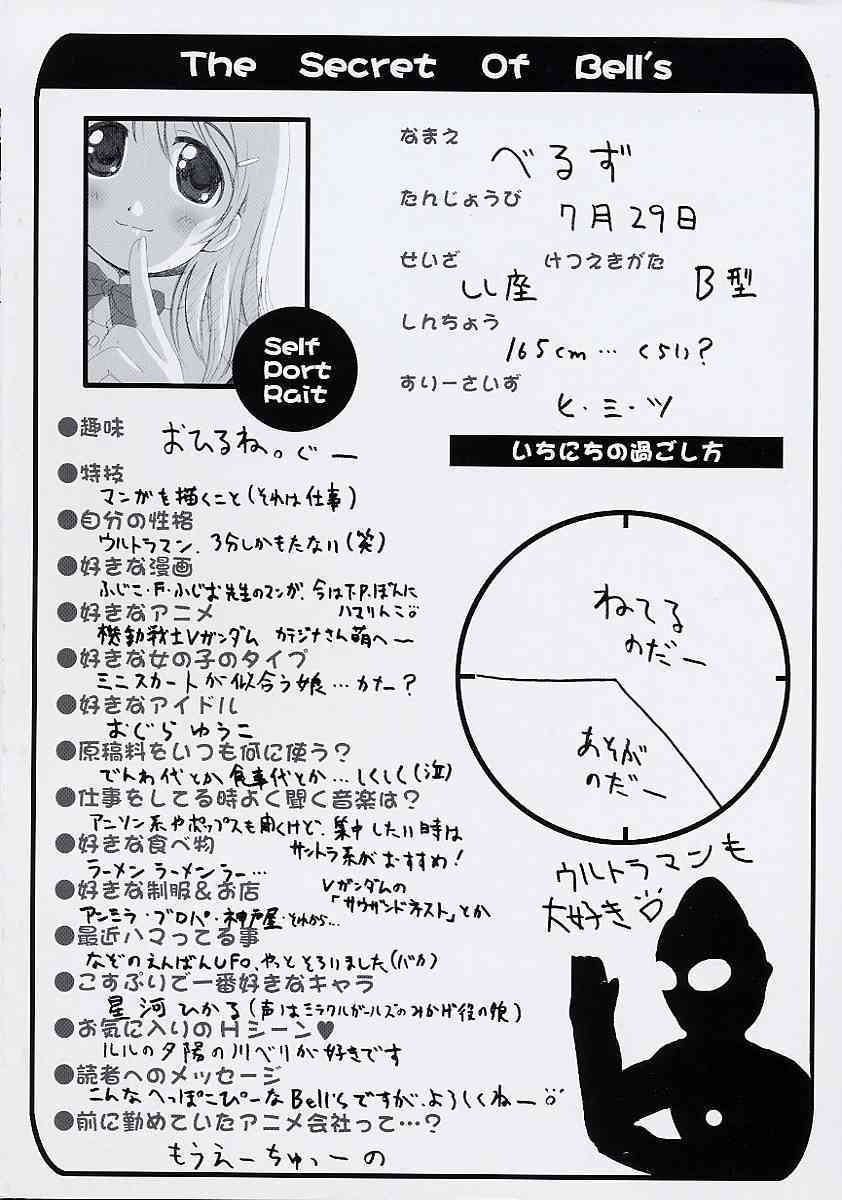 The Secret Of Bell's
なまえ
べるず
たんじょうび
7月29日
せいざ
しし座
けつえきがた
B型
しんちょう
165cm…くらい?
すりーさいず
ヒ・ミ・ツ
Self
Port
Rait
●趣味
おひるね。ぐー
●特技
マンガを描くこと(それは仕事)
●自分の性格
ウルトラマン、3分しかもたない(笑)
●好きな漫画
ふじこ・F・ふじお先生のマンガ、今はT.P.ぼんに
ハマりんこ
●好きなアニメ
機動戦士Vガンダム カテジナさん萌へー
●好きな女の子のタイプ
ミニスカートが似合う娘…かなー?
●好きなアイドル
おぐら ゆうこ
●原稿料をいつも何に使う?
でんわ代とか食事代とか…しくしく(泣)
●仕事をしてる時よく聞く音楽は?
アニソン系やポップスも聞くけど、集中したい時は
サントラ系がおすすめ!
Vガンダムの
「サウザンドネスト」とか
●好きな食べ物
ラーメン ラーメン ラー…
●好きな制服&お店
アンミラ・ブロパ・神戸屋・それから…
●最近ハマってる事
なぞのえんばんUFO、やっとそろいました(バカ)
●こすぷりで一番好きなキャラ
星河ひかる(声はミラクルガールズのみかげ役の娘)
●お気に入りのHシーン♥
ルルの夕陽の川べりが好きです
●読者へのメッセージ
こんなへっぽこぴーなBell'sですが、よろしくねー
●前に勤めていたアニメ会社って…?
もうえーちゅっーの
いちにちの過ごし方
ねてる
のだー
あそぶ
のだー
ウルトラマンも
大好き